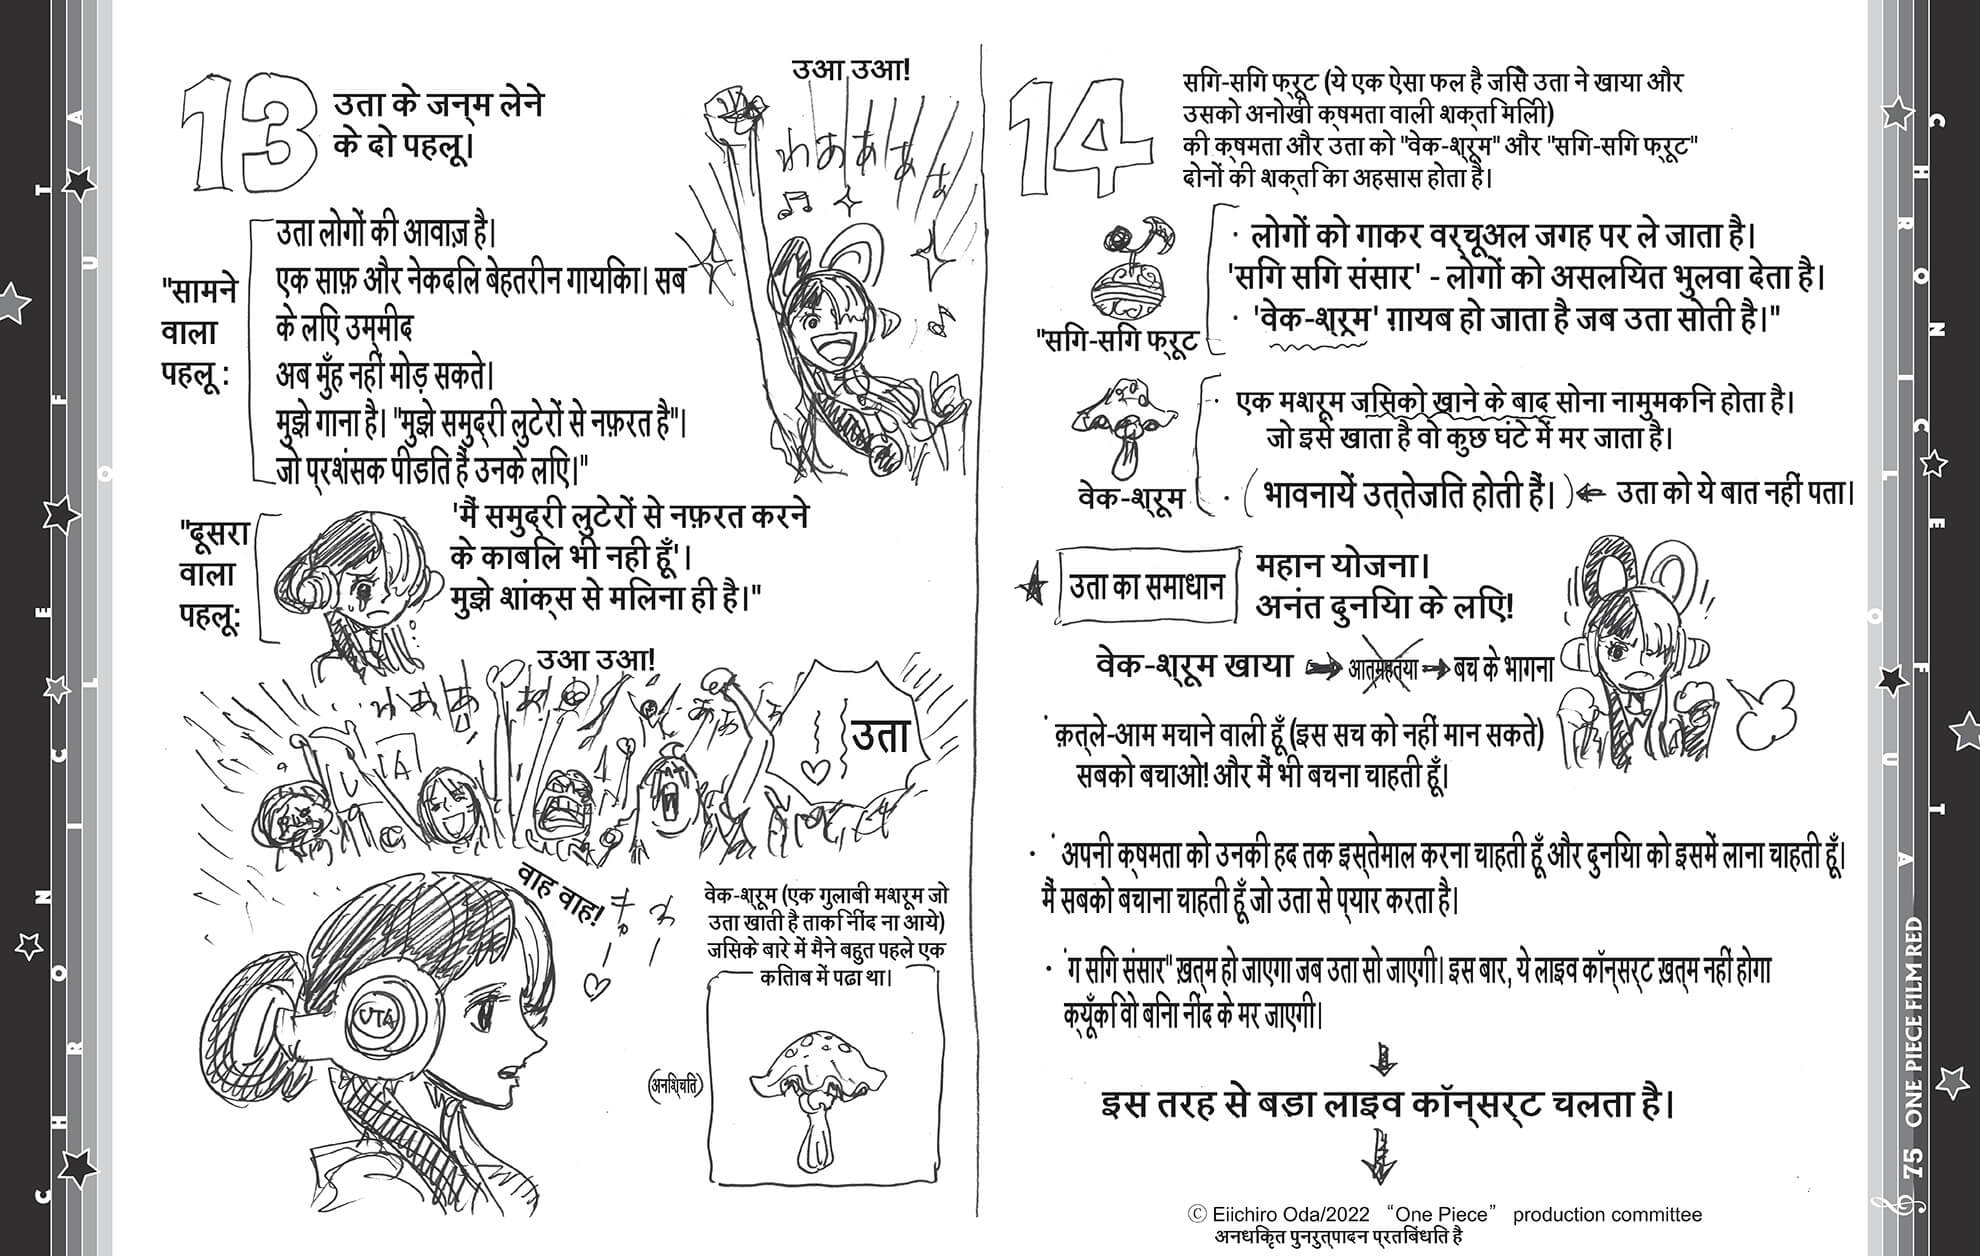 CHRONICLE OF UTA
13
उता के जन्म लेने
के दो पहलू।
उआ उआ!
"सामने
वाला
पहलू :
उता लोगों की आवाज़ है।
एक साफ़ और नेकदलि बेहतरीन गायकिा। सब
के लएि उम्मीद
अब मुँह नहीं मोड़ सकते।
मुझे गाना है। "मुझे समुद्री लुटेरों से नफ़रत है"।
जो प्रशंसक पीडति हैं उनके लएि।"
"दूसरा
वाला
पहलू:
'मैं समुद्री लुटेरों से नफ़रत करने
के काबलि भी नही हूँ'।
मुझे शांक्स से मलिना ही है।"
उआ उआ!
UTA
उता
वाह वाह!
UTA
वेक-श्रूम (एक गुलाबी मशरूम जो
उता खाती है ताकि नींद ना आये)
जसिके बारे में मैने बहुत पहले एक
कतिाब में पढा था।
(अनश्चिति)
14
सगि-सगि फ्रूट (ये एक ऐसा फल है जसिे उता ने खाया और
उसको अनोखी क्षमता वाली शक्ति मिली)
की क्षमता और उता को "वेक-श्रूम" और "सगि-सगि फ्रूट"
दोनों की शक्ति का अहसास होता है।
"सगि-सगि फ्रूट
· लोगों को गाकर वर्चूअल जगह पर ले जाता है।
'सगि सगि संसार' - लोगों को असलयित भुलवा देता है।
· 'वेक-श्रूम' ग़ायब हो जाता है जब उता सोती है।"
वेक-श्रूम
· एक मशरूम जसिको खाने के बाद सोना नामुमकनि होता है।
जो इसे खाता है वो कुछ घंटे में मर जाता है।
· (भावनायें उत्तेजति होती हैं।) ← उता को ये बात नहीं पता।
★ उता का समाधान
महान योजना।
अनंत दुनयिा के लएि!
वेक-श्रूम खाया → आत्महत्या → बच के भागना
क़त्ले-आम मचाने वाली हूँ (इस सच को नहीं मान सकते)
सबको बचाओ! और मैं भी बचना चाहती हूँ।
· अपनी क्षमता को उनकी हद तक इस्तेमाल करना चाहती हूँ और दुनयिा को इसमें लाना चाहती हूँ।
मैं सबको बचाना चाहती हूँ जो उता से प्यार करता है।
· 'ग सगि संसार" ख़त्म हो जाएगा जब उता सो जाएगी। इस बार, ये लाइव कॉन्सर्ट ख़त्म नहीं होगा
क्यूँकि वो बनिा नींद के मर जाएगी।
इस तरह से बडा लाइव कॉन्सर्ट चलता है।
Ⓒ Eiichiro Oda/2022 “One Piece” production committee
अनधकिृत पुनरुत्पादन प्रतबिंधति है
CHRONICLE OF UTA
75 ONE PIECE FILM RED